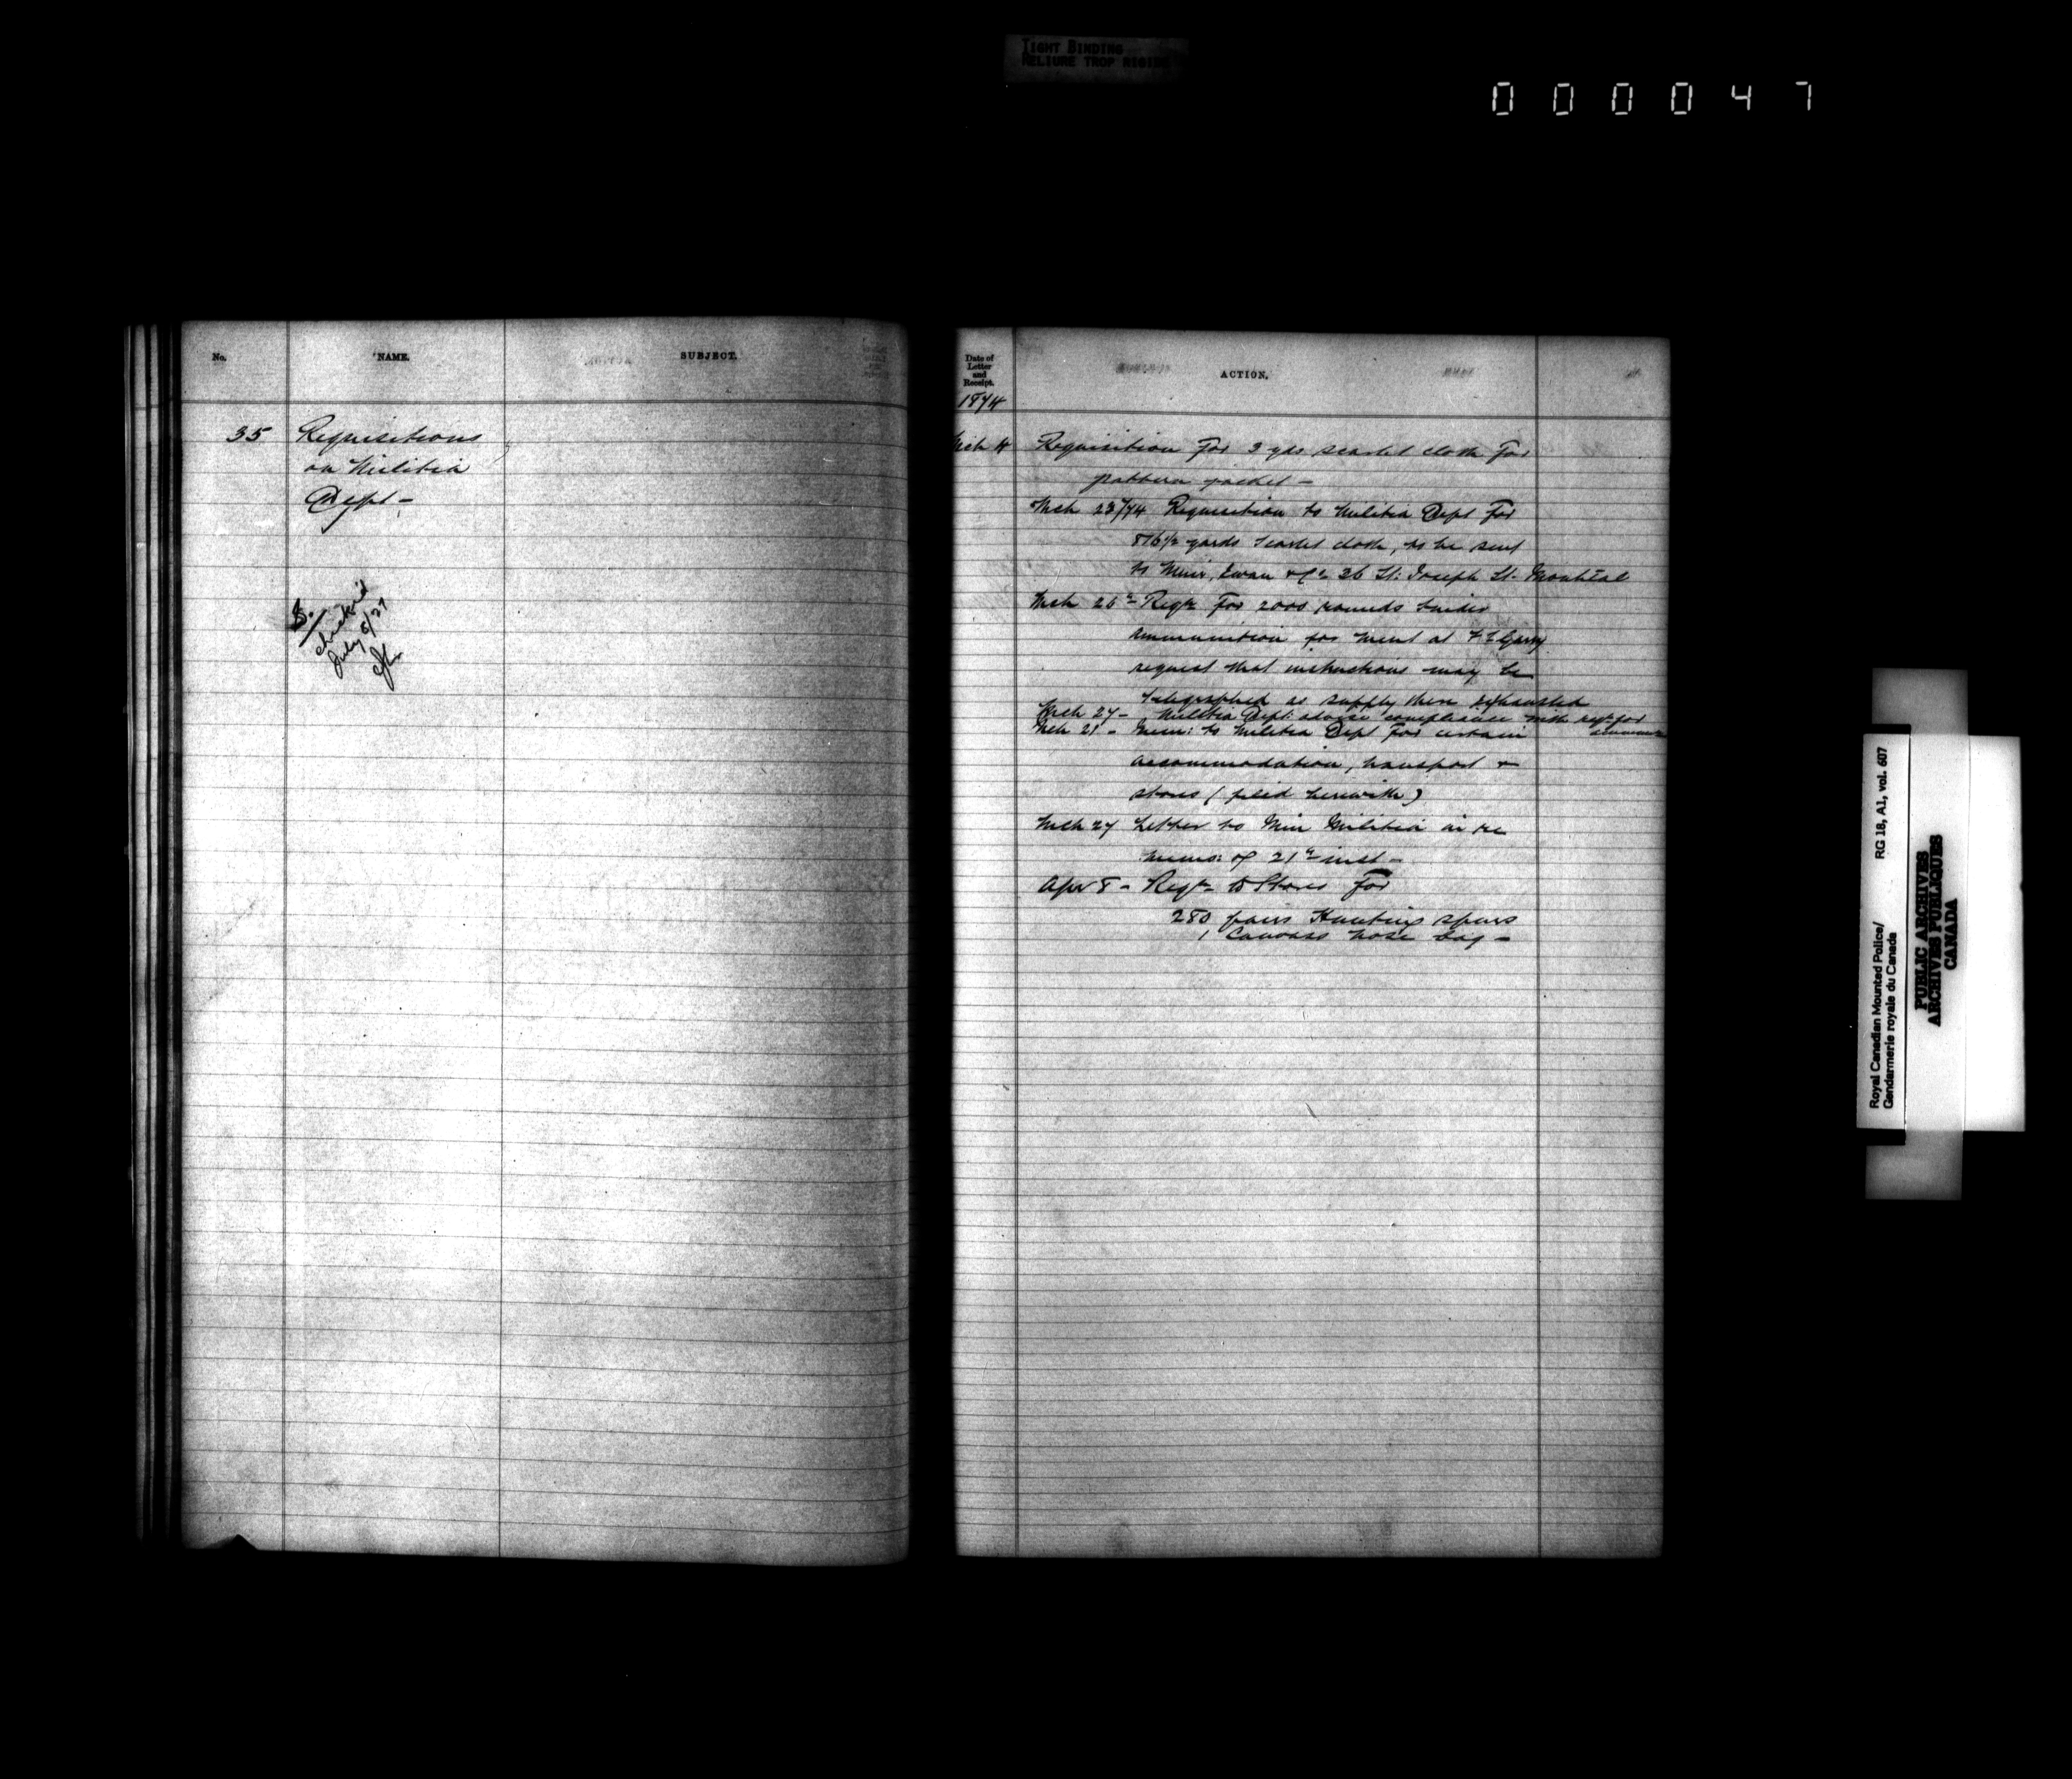 TIGHT BINDING
RELIURE TROP RIGIDE
000047
No. NAME. SUBJECT.
35 Requisitions
on Militia
Dept -
S.
checked
July 5/27
Date of
Letter
and
Receipt.
ACTION.
1874
Mch 4 Requisition for 3 yds scarlet cloth for
pattern jacket -
Mch 23/74 Requisition to Militia Dept for
876 1/2 yards scarlet cloth, to be sent
to Muir, Ewan & Co 26 St: Joseph St. Montreal
Mch 26th Reqn for 2000 rounds Snider
ammunition for ment at Ft Garry
request that instructions may be
telegraphed as supply there exhausted
Mch 27 - Militia Dept: advise compliance with reqn for
Mch 21 - Mem: to Militia Dept for certain
accommodation, transport &
stores (filed herewith)
Mch 27 Letter to Min Militia in re
memo: of 21st inst -
Apr 8 - Reqn to Stores for
280 pairs Hunting spurs
1 Canvass nose bag -
Royal Canadian Mounted Police/
Gendarmerie royale du Canada
RG 18, A1, vol. 607
PUBLIC ARCHIVES
ARCHIVES PUBLIQUES
CANADA